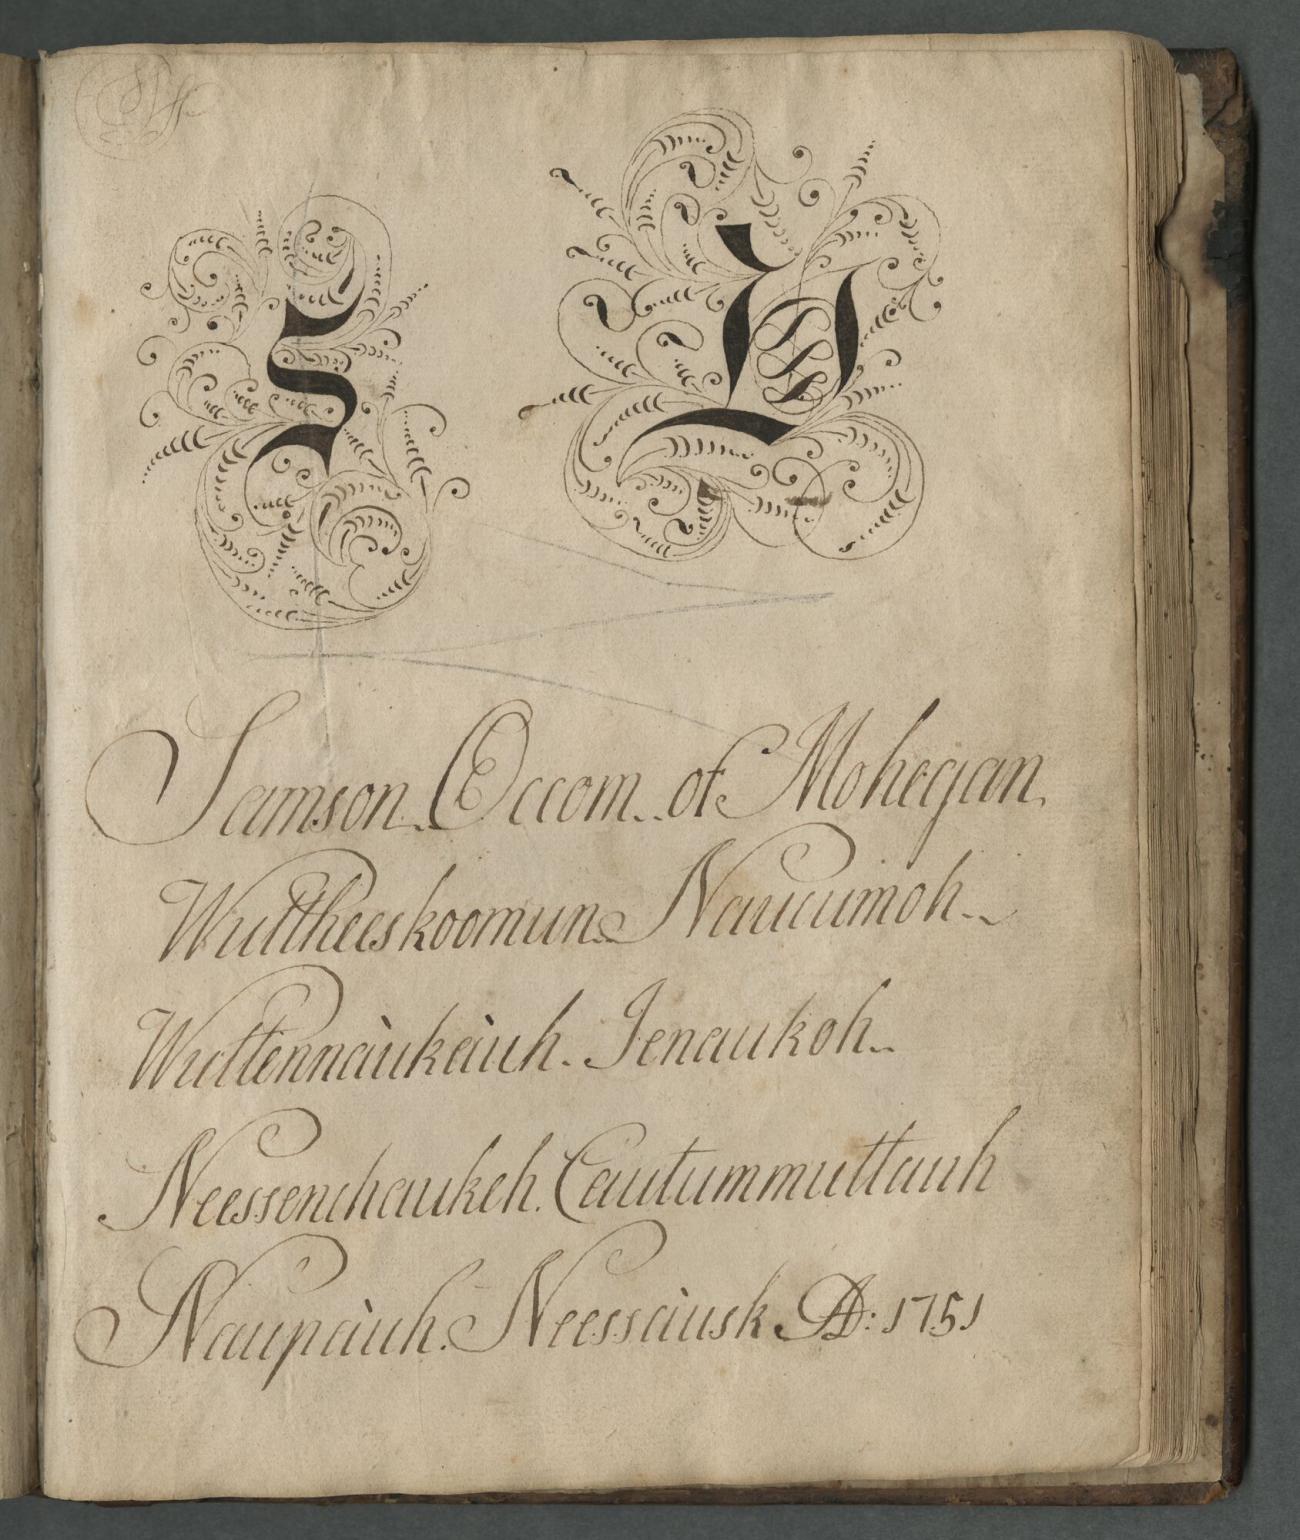 S W
Samson Occom of Mohegan
Wuttheeskoomun Nauumoh
Wuttennàukàuh. Jenaukoh
Neessenchaukeh. Cautummuttauh
Naupàuh. Neessàusk AD: 1751